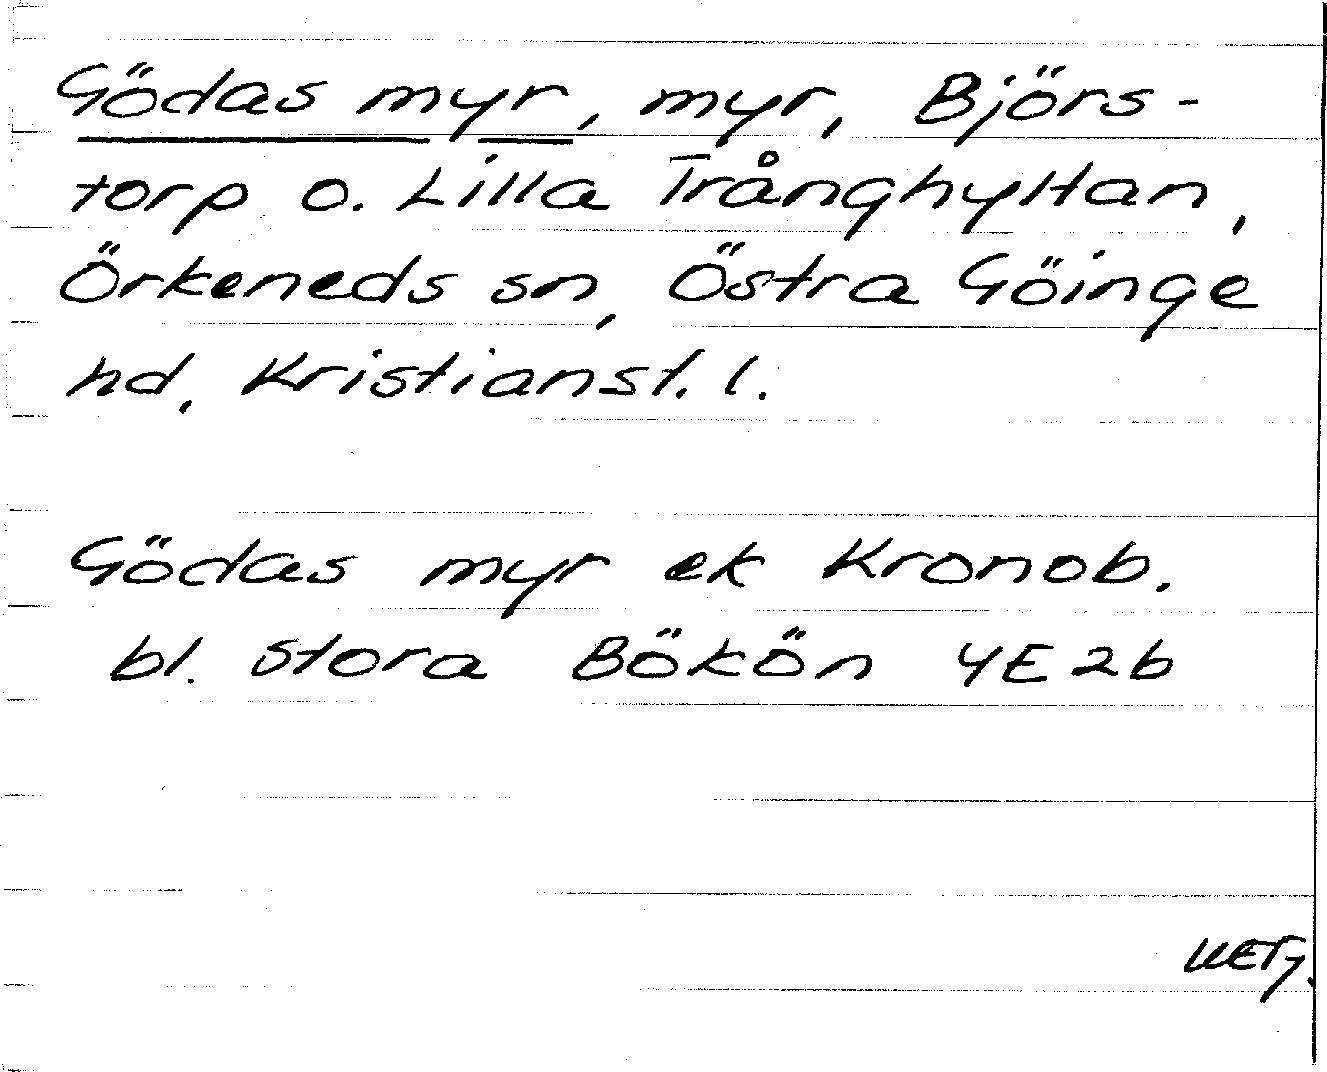 Gödas myr, myr, Björs-
torp o. Lilla Trånghyltan,
Örkeneds sn, Östra Göinge
hd, Kristianst. l.
Gödas myr ek Kronob.
bl. Stora Bökön 4E2b